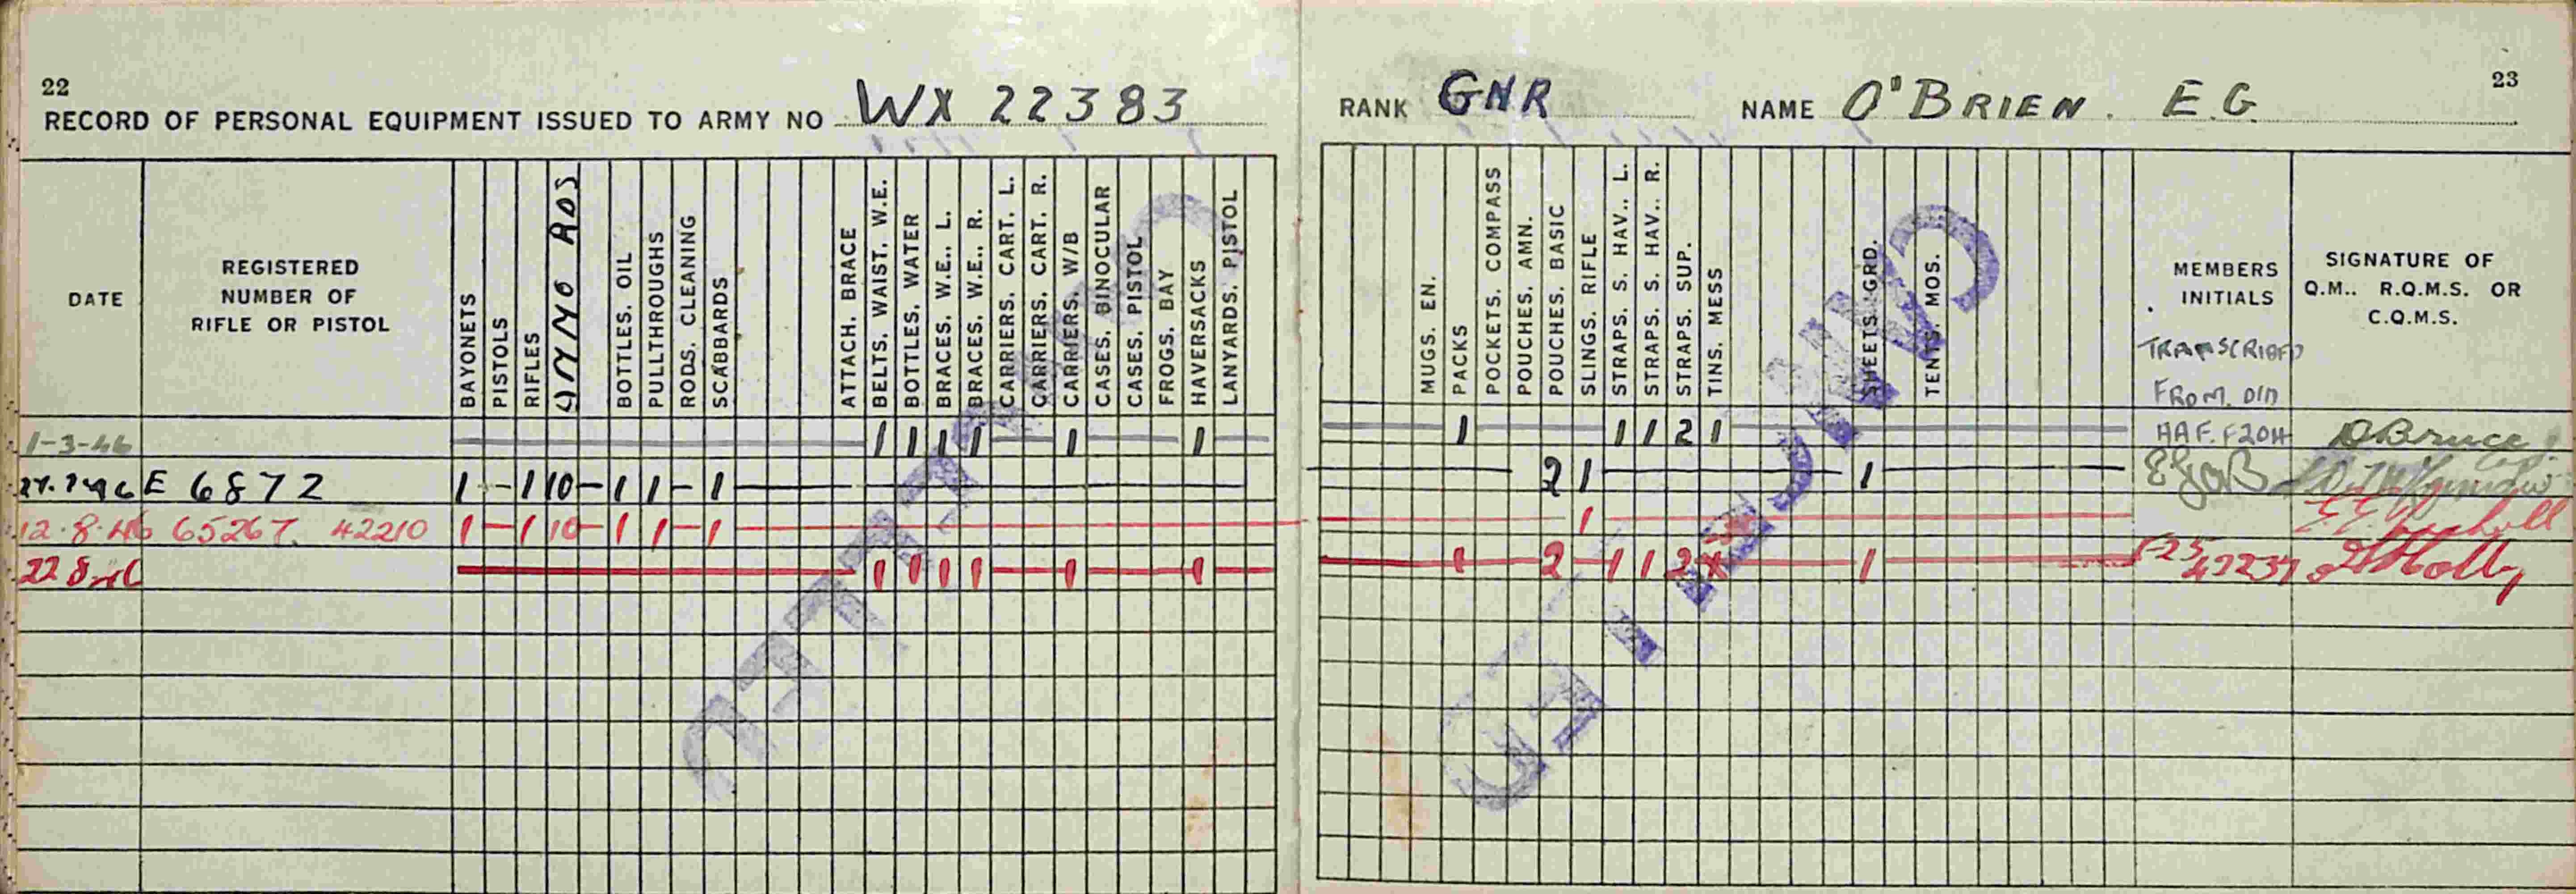 22
RECORD OF PERSONAL EQUIPMENT ISSUED TO ARMY NO WX 22383
RANK GNR NAME O'BRIEN. E.G. 23
DATE
REGISTERED NUMBER OF RIFLE OR PISTOL
BAYONETS
PISTOLS
RIFLES
AMMO RDS
BOTTLES. OIL
PULLTHROUGHS
RODS. CLEANING
SCABBARDS
ATTACH. BRACE
BELTS. WAIST. W.E.
BOTTLES. WATER
BRACES. W.E.. L.
BRACES. W.E.. R.
CARRIERS. CART. L.
CARRIERS. CART. R.
CARRIERS. W/B
CASES. BINOCULAR
CASES. PISTOL
FROGS. BAY
HAVERSACKS
LANYARDS. PISTOL
MUGS. EN.
PACKS
POCKETS. COMPASS
POUCHES. AMN.
POUCHES. BASIC
SLINGS. RIFLE
STRAPS. S. HAV.. L.
STRAPS. S. HAV.. R.
STRAPS. SUP.
TINS. MESS
SHEETS. GRD.
TENTS. MOS.
MEMBERS INITIALS
TRANSCRIBED
FROM. DID
SIGNATURE OF
Q.M.. R.Q.M.S. OR
C.Q.M.S.
1-3-46 1 1 1 1 1 1 1 1 1 2 1 AAF. F20H D Bruce
E 6872 1 1 10 1 1 1 2 1 1
12.8.46 65267. 42210 1 1 10 1 1 1 1
1 1 1 1 1 1 1 2 1 1 2 1 F25
CANCELLED
CANCELLED